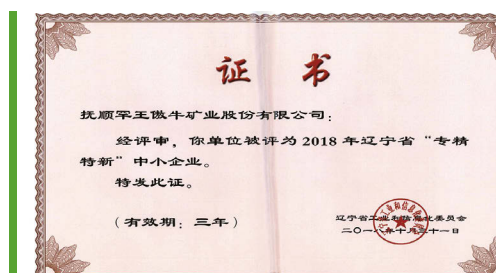 证书
抚顺罕王傲牛矿业股份有限公司：
经评审，你单位被评为 2018 年辽宁省“专精
特新”中小企业。
特发此证。
（有效期：三年）
辽宁省工业和信息化委员会
二〇一八年十月三十一日